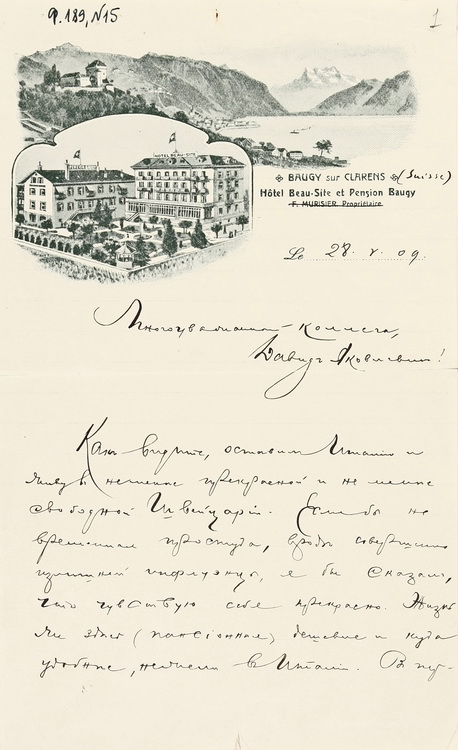 Ф. 189, N 15
1
HÔTEL BEAU-SITE
BAUGY sur CLARENS (Suisse)
Hôtel Beau-Site et Pension Baugy
F. MURISIER, Propriétaire
Le 28. V. 09.
Многоуважаемый Коллега,
Давидъ Яковлевич!
Какъ видите, оставил Италію и
живу в не менее прекрасной и не менее
свободной Швейцаріи. Если бы не
временная простуда, вроде совершенно
излишней инфлуэнцы, я бы сказал,
что чувствую себя прекрасно. Жизнь
здесь (пансіонная) дешевле и куда
удобнее, нежели в Италіи. В пу-